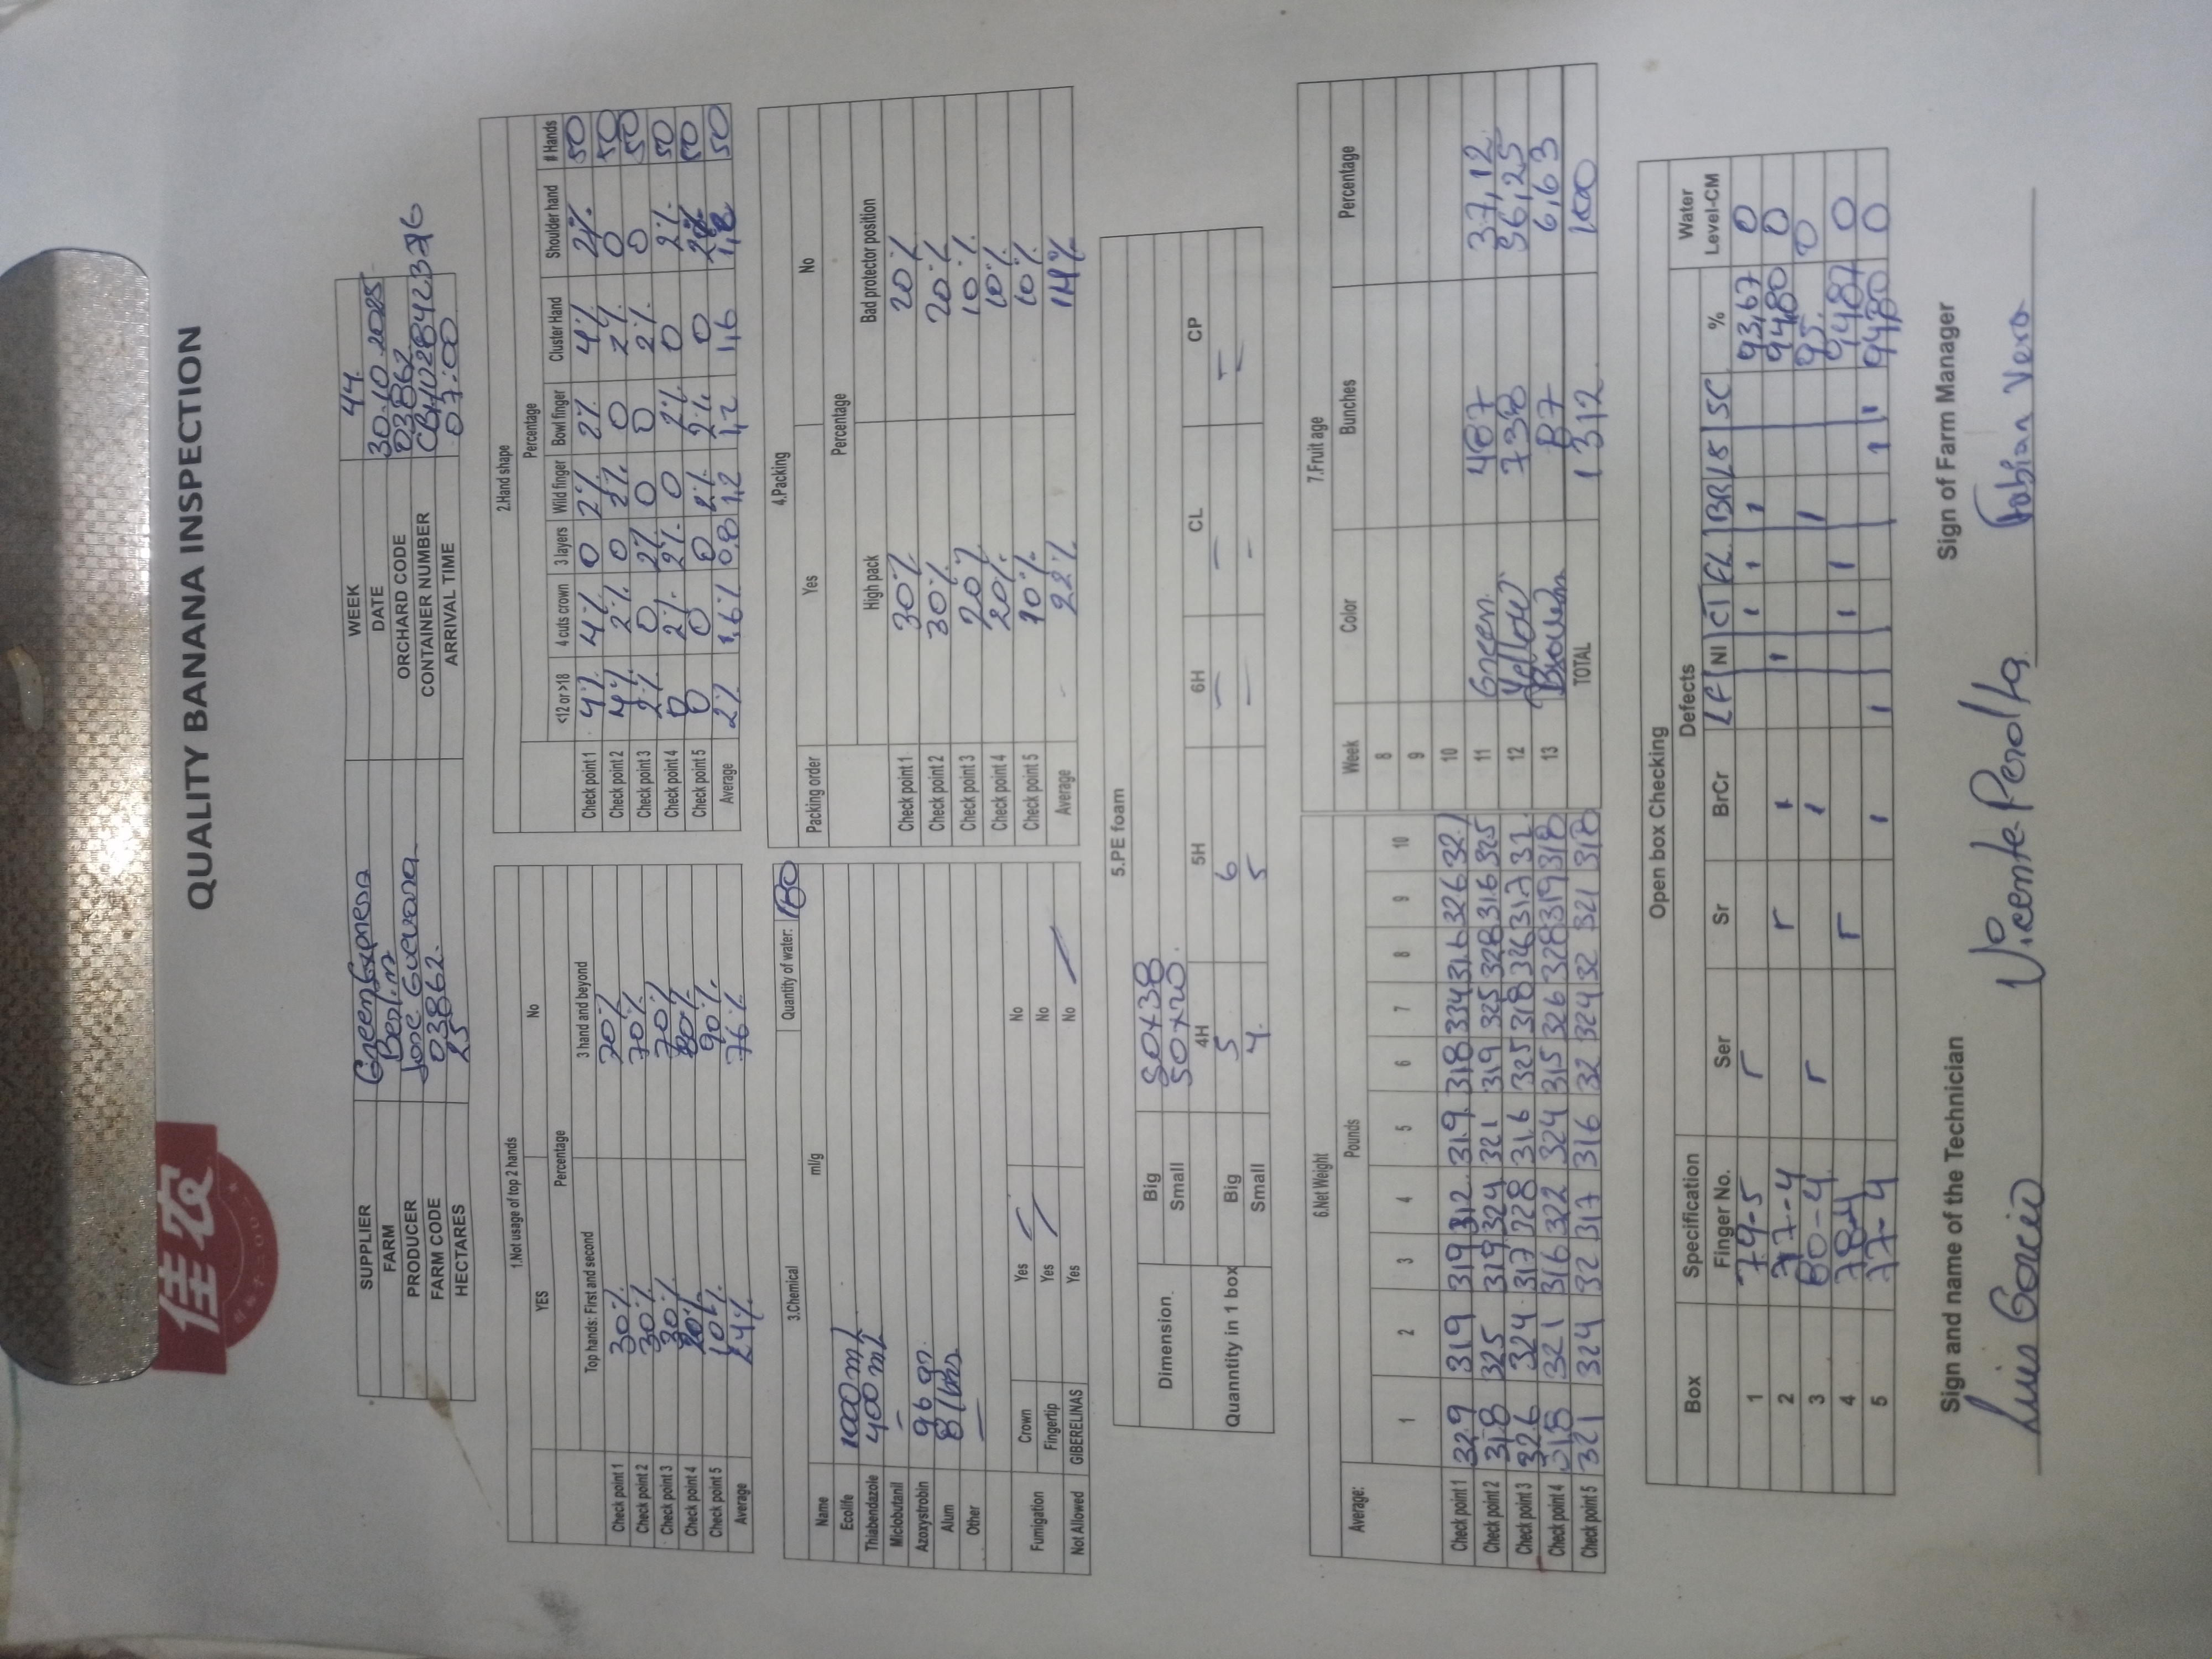 佳农
QUALITY BANANA INSPECTION
SUPPLIER GreenExpress WEEK 44.
FARM Berlin DATE 30.10.2025
PRODUCER Jose Guevara ORCHARD CODE 03862
FARM CODE 03862. CONTAINER NUMBER
HECTARES 25 ARRIVAL TIME 07:00
1.Not usage of top 2 hands
YES No
Percentage
Top hands: First and second 3 hand and beyond
Check point 1 30% 70%
Check point 2 30% 70%
Check point 3 30% 70%
Check point 4 20% 80%
Check point 5 10% 90%
Average 24% 76%
2.Hand shape
Percentage
<12 or >18 4 cuts crown 3 layers Wild finger Bowl finger Cluster Hand Shoulder hand # Hands
Check point 1 4% 4% 0 2% 2% 4% 2% 50
Check point 2 4% 2% 0 2% 0 2% 0 50
Check point 3 2% 0 2% 0 0 2% 0 50
Check point 4 0 2% 2% 0 2% 0 2% 50
Check point 5 0 0 0 2% 2% 0 50
Average 2% 1,6% 0.8 1,2 1,2 1,6 50
3.Chemical Quantity of water: 180
Name ml/g
Ecolife 1000 mL
Thiabendazole 400 mL
Miclobutanil –
Azoxystrobin 96 gr.
Alum 8 lbrs
Other —
Fumigation Crown Yes No
Fingertip Yes No
Not Allowed GIBERELINAS Yes No
4.Packing
Packing order Yes No
Percentage
High pack Bad protector position
Check point 1 30% 20%
Check point 2 30% 20%
Check point 3 20% 10%
Check point 4 20% 10%
Check point 5 10% 10%
Average 22% 14%
5.PE foam
Dimension Big 50x38
Small 50x20.
4H 5H 6H CL CP
Quanntity in 1 box Big 5 6 – – –
Small 4. 5 – – –
6.Net Weight
Average: Pounds
1 2 3 4 5 6 7 8 9 10
Check point 1 32.9 319 319 31.2 31.9 318 334 31.6 32.6 32.1
Check point 2 318 325 319 324 321 319 325 328 316 325
Check point 3 32.6 324 317 328 31.6 325 318 326 317 32.
Check point 4 318 321 316 322 324 315 326 328 319 318
Check point 5 321 324 32 317 316 32 324 32 321 318
7.Fruit age
Week Color Bunches Percentage
8
9
10
11 Green 487 37,12
12 Yellow 738 56,25
13 87 6,63
TOTAL 1312 100
Open box Checking
Box Specification Defects Water
Finger No. Ser Sr BrCr LF NI CT FL BR LS SC % Level-CM
1 79-5 r 1 1 1 93,67 0
2 77-4 r 1 1 94,80 0
3 80-4 r 1 1 95. 0
4 78-4 r 1 1 94,87 0
5 77-4 1 1 1 1 94,80 0
Sign and name of the Technician Sign of Farm Manager
Luis Garcia Vicente Peralta Fabian Vera